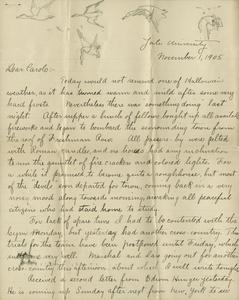 Yale University
November 1, 1905
Dear Carol:-
Today would not remind one of Hallowe'en
weather, as it has turned warm and mild after some very
hard frosts. Nevertheless there was something doing last
night. After supper a bunch of fellows bought up all available
fireworks and began to bombard the surrounding town from
the roof of Freshman Row. All passers by were pelted
with Roman candles, and no horses had any inclination
to run the gauntlet of fire crackers and colored lights. For
a while it promised to become quite a roughhouse, but most
of the devils soon departed for town, coming back in a very
noisy mood along towards morning, waking all peaceful
citizens who had stood home to study.
For lack of space him I had to be contented with the
Gym Monday, but yesterday had another cross-country. The
trials for the team have been postponed until Friday, which
very well. Marshal and Law going out for another
cross country this afternoon about four. I will write tonight
Received a second letter from Odium Hunger yesterday.
He is coming up Sunday after next from New York to see